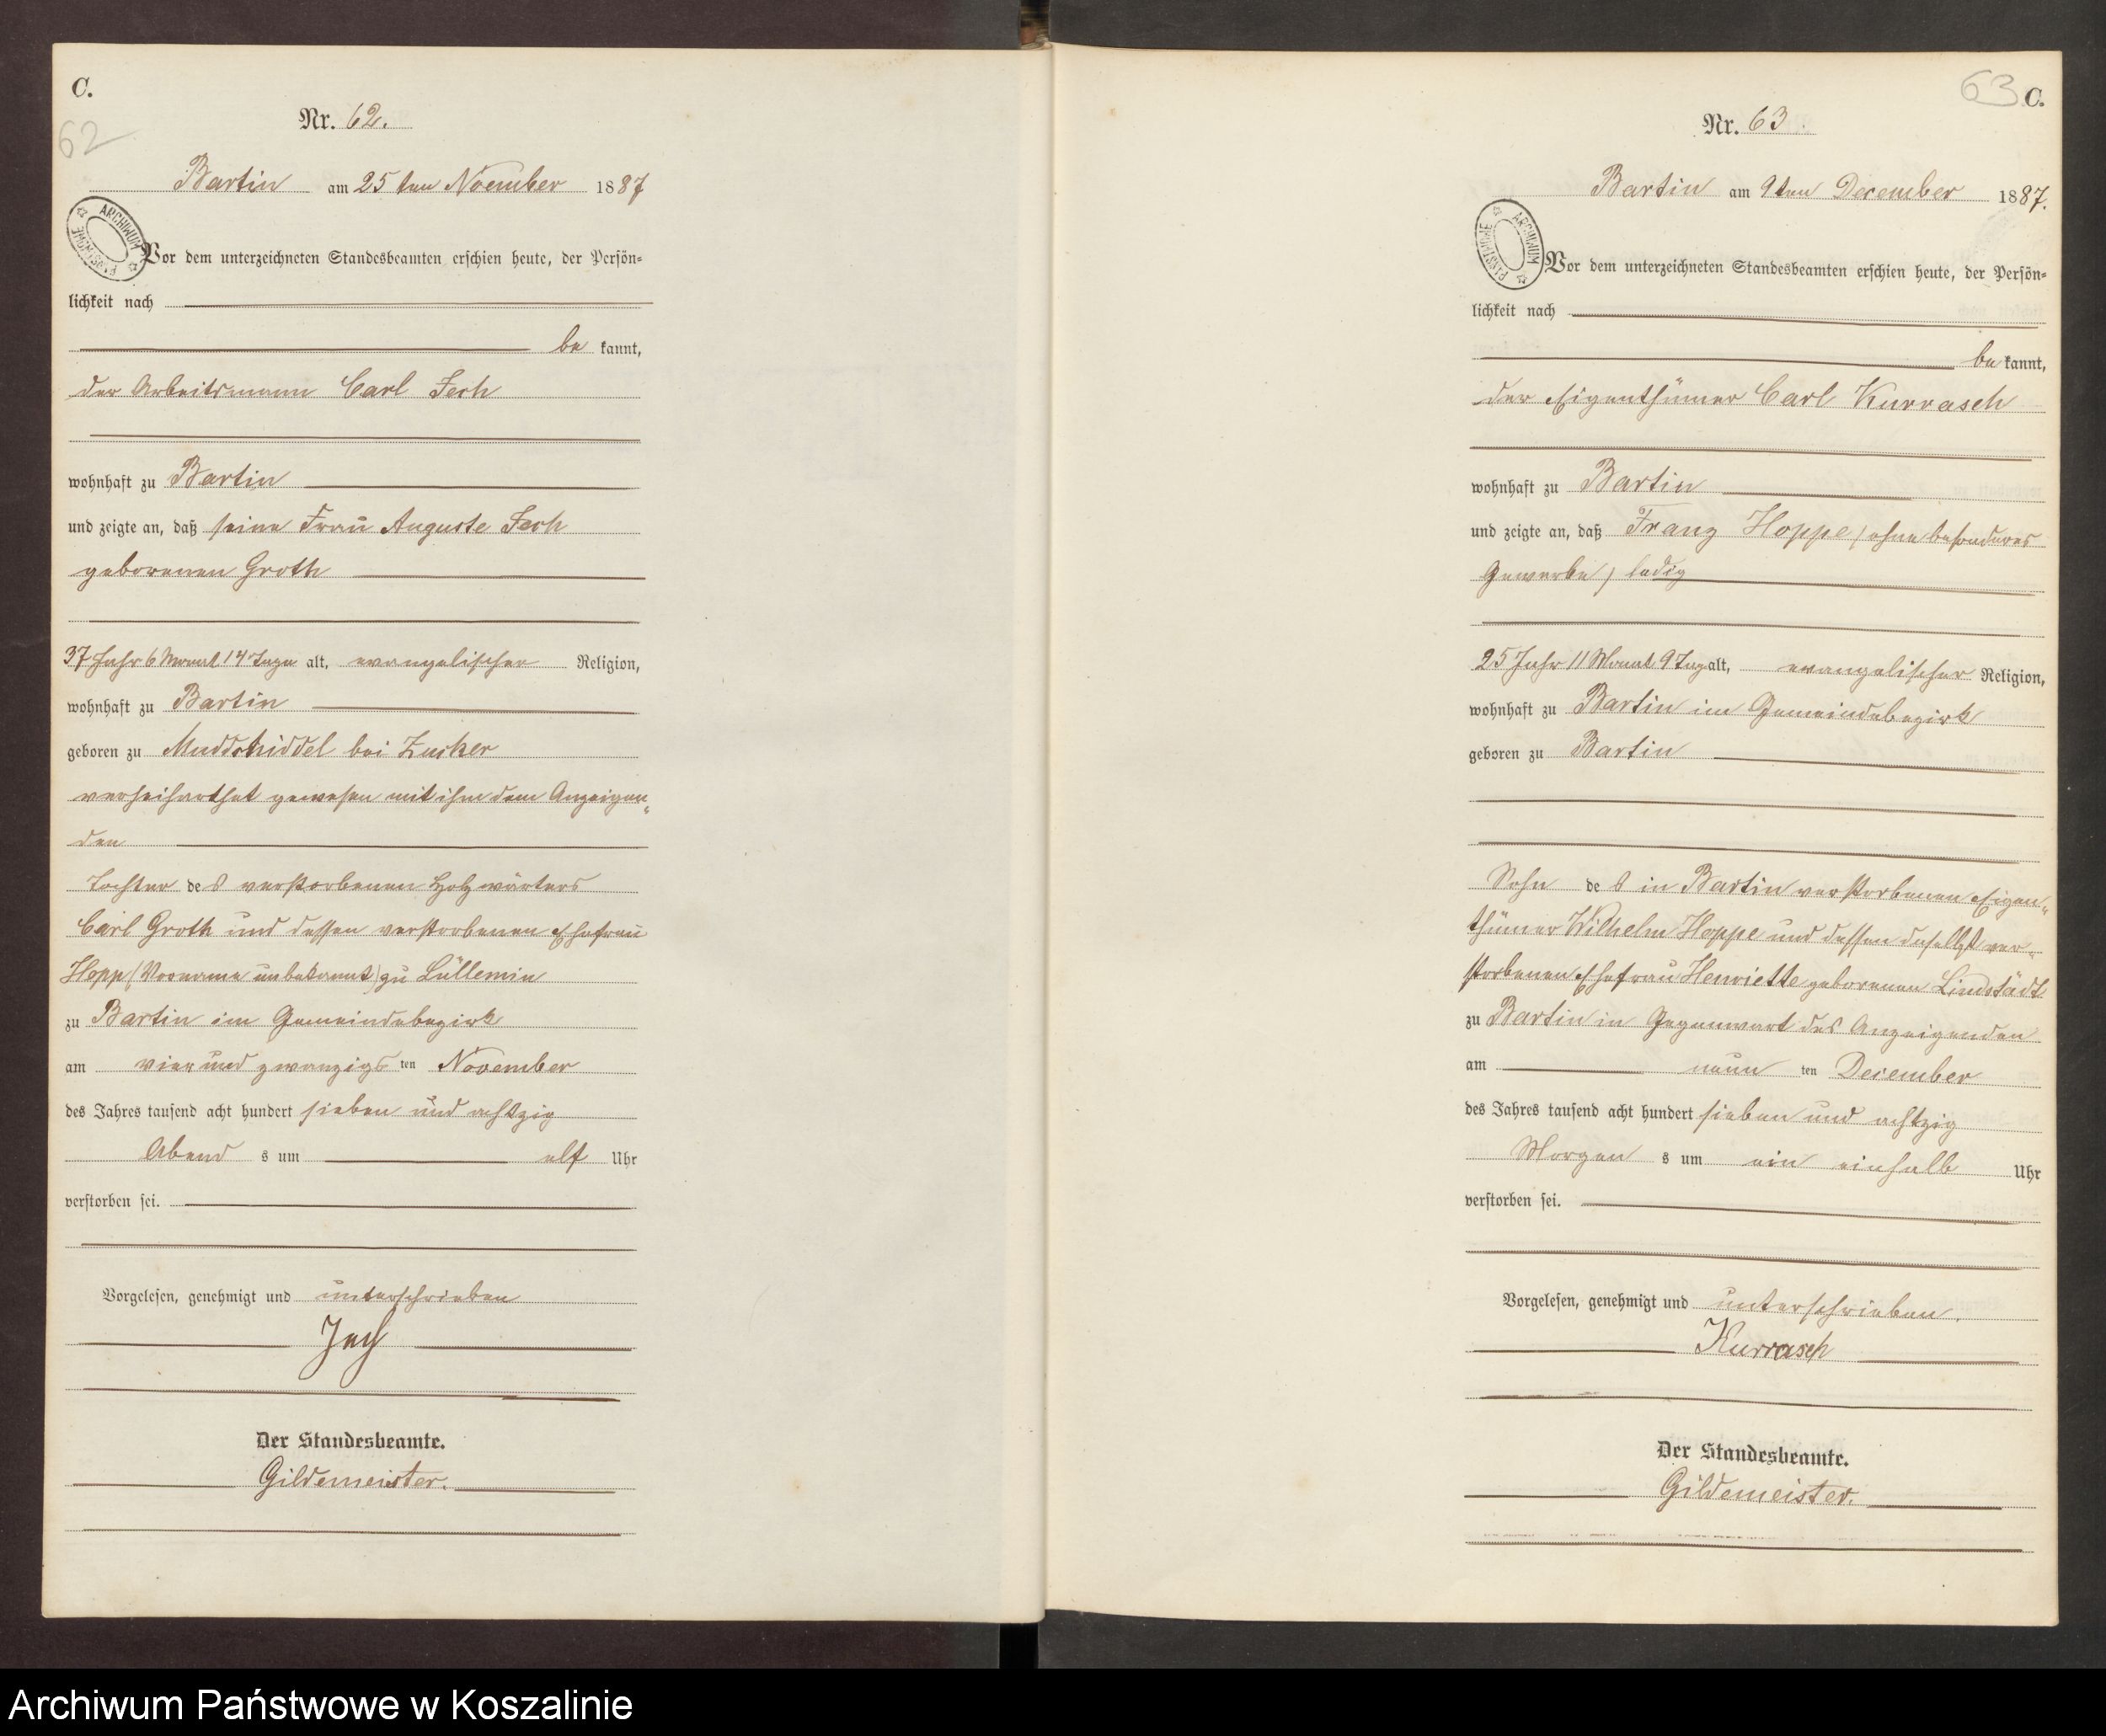 C.
62
Nr. 62.
Bartin am 25ten November 1887
ARCHIWUM PAŃSTWOWE
Vor dem unterzeichneten Standesbeamten erschien heute, der Persön=
lichkeit nach
be kannt,
der Arbeitsmann Carl Jech
wohnhaft zu Bartin
und zeigte an, daß seine Frau Auguste Jech
geborenen Groth
37 Jahr 6 Monat 14 Tage alt, evangelischer Religion,
wohnhaft zu Bartin
geboren zu Muddshiddel bei Zucker
verheiharthet gewesen mit ihm dem Anzeigen„
den
Tochter des verstorbenen Holzwärters
Carl Groth und dessen verstorbenen Ehefrau
Hopp (Vorname unbekannt) zu Lüllemin
zu Bartin im Gemeindebezirk
am vier und zwanzigs ten November
des Jahres tausend acht hundert sieben und achtzig
Abend s um elf Uhr
verstorben sei.
Vorgelesen, genehmigt und unterschrieben
Jech
Der Standesbeamte.
Gildemeister.
63 C.
Nr. 63
Bartin am 9ten December 1887.
ARCHIWUM PAŃSTWOWE
Vor dem unterzeichneten Standesbeamten erschien heute, der Persön=
lichkeit nach
be kannt,
der Eigenthümer Carl Kurrasch
wohnhaft zu Bartin
und zeigte an, daß Franz Hoppe (ohne besonderes
Gewerbe) ledig
25 Jahr 11 Monat 9 Tag alt, evangelischer Religion,
wohnhaft zu Bartin im Gemeindebezirk
geboren zu Bartin
Sohn des in Bartin verstorbenen Eigen„
thümer Wilhelm Hoppe und dessen daselbst ver„
storbenen Ehefrau Henriette geborenen Lindstädt
zu Bartin in Gegenwart des Anzeigenden
am neun ten December
des Jahres tausend acht hundert sieben und achtzig
Morgen s um ein einhalb Uhr
verstorben sei.
Vorgelesen, genehmigt und unterschrieben.
Kurrasch
Der Standesbeamte.
Gildemeister.
Archiwum Państwowe w Koszalinie